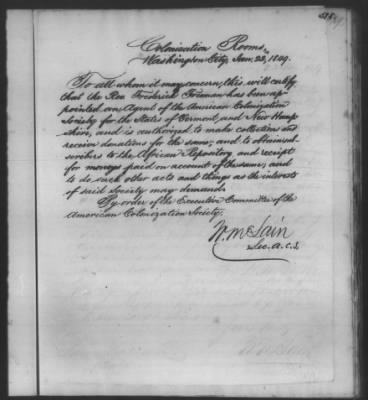 Colonization Rooms,
Washington City, Jan. 23, 1849.
To all whom it may concern, this will certify
that the Rev. Frederick Freeman has been ap-
pointed an Agent of the American Colonization
Society for the States of Vermont, and New Hamp-
shire, and is authorized to make collections and
receive donations for the same; and to obtain sub-
scribers to the African Repository and receipt
for moneys paid on account of the same; and
to do such other acts and things as the interests
of said Society may demand.
By order of the Executive Committee of the
American Colonization Society.
W. McLain
Sec. A.C.S.